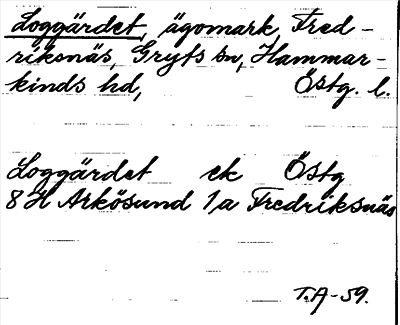 Loggärdet, ägomark, Fred-
riksnäs, Gryts sn, Hammar-
kinds hd, Östg. l.
Loggärdet ek Östg
8 H Arkösund 1a Fredriksnäs
T.A-59.